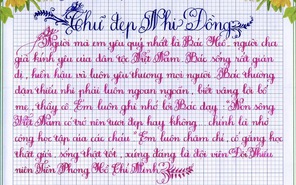 Chữ đẹp Nhi Đồng
Người mà em yêu quý nhất là Bác Hồ, người cha
già kính yêu của dân tộc Việt Nam. Bác sống rất giản
dị, hiền hậu và luôn yêu thương mọi người. Bác thường
dặn thiếu nhi phải luôn ngoan ngoãn, biết vâng lời bố
mẹ, thầy cô. Em luôn ghi nhớ lời Bác dạy: "Non sông
Việt Nam có trở nên tươi đẹp hay không... chính là nhờ
công học tập của các cháu". Em luôn chăm chỉ, cố gắng học
thật giỏi, sống thật tốt, xứng đáng là đội viên Đội Thiếu
niên Tiền Phong Hồ Chí Minh.